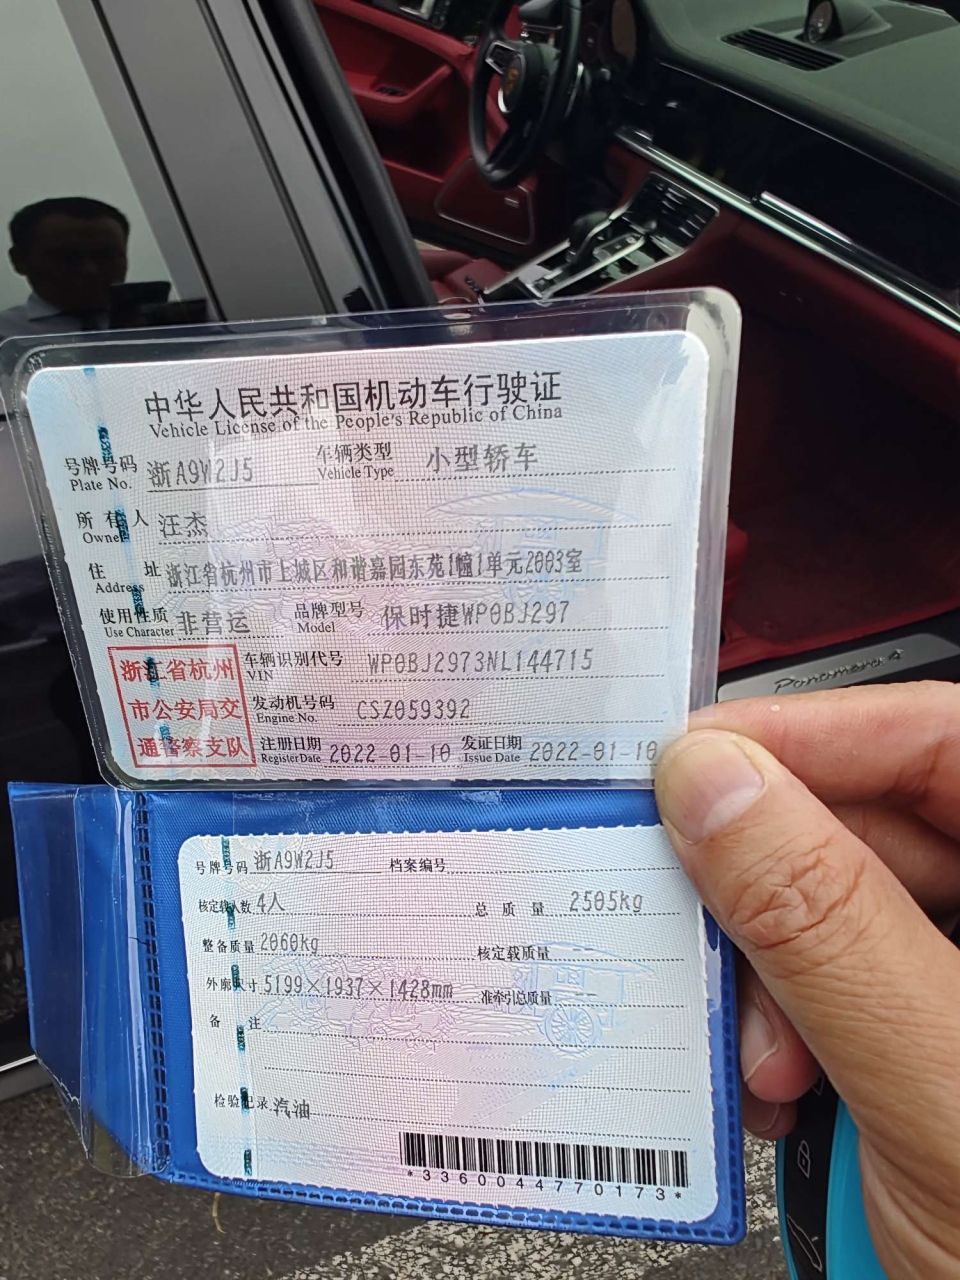 中华人民共和国机动车行驶证
Vehicle License of the People's Republic of China
号牌号码 浙A9W2J5 车辆类型 小型轿车
Plate No. Vehicle Type
所有人 汪杰
Owner
住址 浙江省杭州市上城区和谐嘉园东苑1幢1单元2003室
Address
使用性质 非营运 品牌型号 保时捷WP0BJ297
Use Character Model
浙江省杭州
市公安局交
通警察支队
车辆识别代号 WP0BJ2973NL144715
VIN
发动机号码 CSZ059392
Engine No.
注册日期 2022-01-10 发证日期 2022-01-10
Register Date Issue Date
号牌号码 浙A9W2J5 档案编号
核定载人数 4人 总质量 2505kg
整备质量 2060kg 核定载质量
外廓尺寸 5199×1937×1428mm 准牵引总质量 --
备注
检验记录 汽油
*3360044770173*
Panamera 4